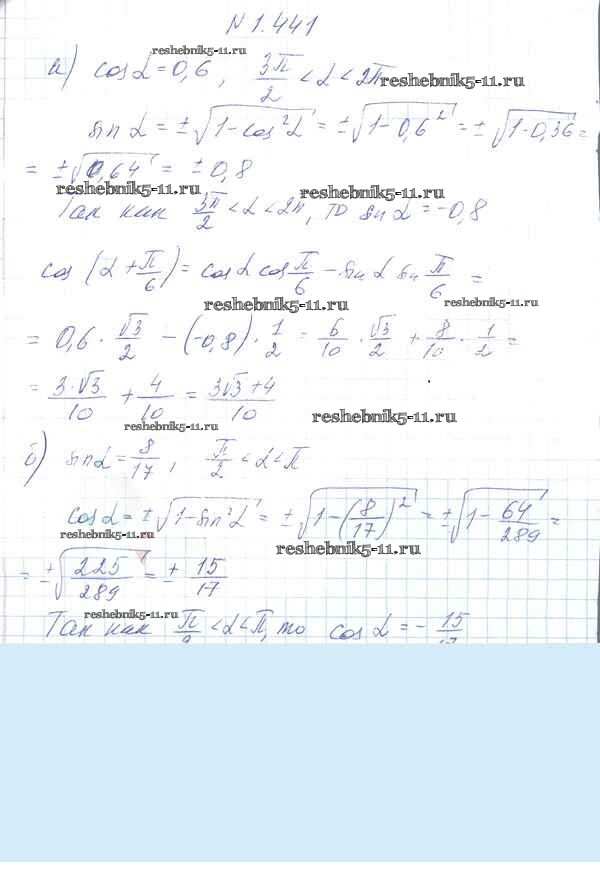 N 1.441
reshebnik5-11.ru
а) cos α = 0,6 , 3π/2 < α < 2π
reshebnik5-11.ru
sin α = ±√(1 - cos²α) = ±√(1 - 0,6²) = ±√(1 - 0,36) =
= ±√0,64 = ±0,8
reshebnik5-11.ru
reshebnik5-11.ru
Так как 3π/2 < α < 2π, то sin α = -0,8
cos (α + π/6) = cos α cos π/6 - sin α sin π/6 =
reshebnik5-11.ru
reshebnik5-11.ru
= 0,6 · √3/2 - (-0,8) · 1/2 = 6/10 · √3/2 + 8/10 · 1/2 =
= 3·√3/10 + 4/10 = 3√3+4/10
reshebnik5-11.ru
reshebnik5-11.ru
б) sin α = 8/17 , π/2 < α < π
cos α = ±√(1 - sin²α) = ±√(1 - (8/17)²) = ±√(1 - 64/289) =
reshebnik5-11.ru
reshebnik5-11.ru
= ±√(225/289) = ±15/17
reshebnik5-11.ru
Так как π/2 < α < π, то cos α = - 15/17